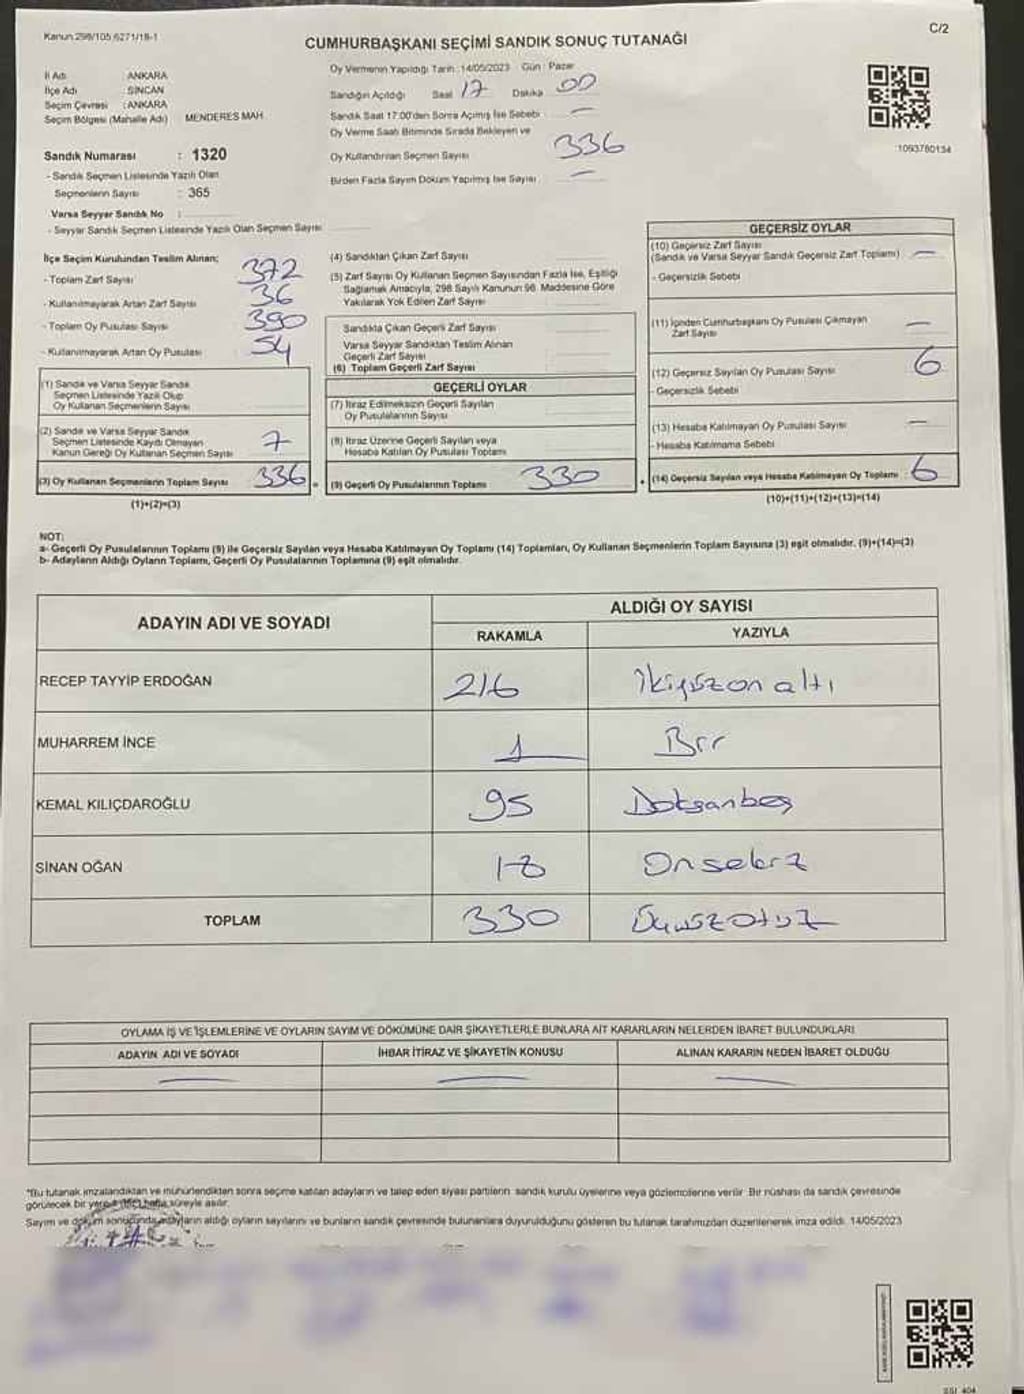 Kanun 298/105,6271/18-1
C/2
CUMHURBAŞKANI SEÇİMİ SANDIK SONUÇ TUTANAĞI
İl Adı ANKARA
İlçe Adı SİNCAN
Seçim Çevresi : ANKARA
Seçim Bölgesi (Mahalle Adı) MENDERES MAH.
Sandık Numarası : 1320
- Sandık Seçmen Listesinde Yazılı Olan
Seçmenlerin Sayısı : 365
Varsa Seyyar Sandık No :
- Seyyar Sandık Seçmen Listesinde Yazılı Olan Seçmen Sayısı
Oy Vermenin Yapıldığı Tarih : 14/05/2023 Gün : Pazar
Sandığın Açıldığı Saat 17 Dakika 00
Sandık Saat 17:00'den Sonra Açılmış İse Sebebi —
Oy Verme Saati Bitiminde Sırada Bekleyen ve
Oy Kullandırılan Seçmen Sayısı 336
Birden Fazla Sayım Döküm Yapılmış İse Sayısı —
1093780134
İlçe Seçim Kurulundan Teslim Alınan;
- Toplam Zarf Sayısı 372
- Kullanılmayarak Artan Zarf Sayısı 36
- Toplam Oy Pusulası Sayısı 390
- Kullanılmayarak Artan Oy Pusulası 54
(1) Sandık ve Varsa Seyyar Sandık
Seçmen Listesinde Yazılı Olup
Oy Kullanan Seçmenlerin Sayısı
(2) Sandık ve Varsa Seyyar Sandık
Seçmen Listesinde Kaydı Olmayan
Kanun Gereği Oy Kullanan Seçmen Sayısı 7
(3) Oy Kullanan Seçmenlerin Toplam Sayısı 336
(1)+(2)=(3)
(4) Sandıktan Çıkan Zarf Sayısı
(5) Zarf Sayısı Oy Kullanan Seçmen Sayısından Fazla İse, Eşitliği
Sağlamak Amacıyla, 298 Sayılı Kanunun 98. Maddesine Göre
Yakılarak Yok Edilen Zarf Sayısı
Sandıkta Çıkan Geçerli Zarf Sayısı
Varsa Seyyar Sandıktan Teslim Alınan
Geçerli Zarf Sayısı
(6) Toplam Geçerli Zarf Sayısı
GEÇERLİ OYLAR
(7) İtiraz Edilmeksizin Geçerli Sayılan
Oy Pusulalarının Sayısı
(8) İtiraz Üzerine Geçerli Sayılan veya
Hesaba Katılan Oy Pusulası Toplamı
= (9) Geçerli Oy Pusulalarının Toplamı 330
GEÇERSİZ OYLAR
(10) Geçersiz Zarf Sayısı
(Sandık ve Varsa Seyyar Sandık Geçersiz Zarf Toplamı) —
- Geçersizlik Sebebi
(11) İçinden Cumhurbaşkanı Oy Pusulası Çıkmayan
Zarf Sayısı —
(12) Geçersiz Sayılan Oy Pusulası Sayısı 6
- Geçersizlik Sebebi
(13) Hesaba Katılmayan Oy Pusulası Sayısı —
- Hesaba Katılmama Sebebi
+ (14) Geçersiz Sayılan veya Hesaba Katılmayan Oy Toplamı : 6
(10)+(11)+(12)+(13)=(14)
NOT:
a- Geçerli Oy Pusulalarının Toplamı (9) ile Geçersiz Sayılan veya Hesaba Katılmayan Oy Toplamı (14) Toplamları, Oy Kullanan Seçmenlerin Toplam Sayısına (3) eşit olmalıdır. (9)+(14)=(3)
b- Adayların Aldığı Oyların Toplamı, Geçerli Oy Pusulalarının Toplamına (9) eşit olmalıdır.
ADAYIN ADI VE SOYADI
ALDIĞI OY SAYISI
RAKAMLA YAZIYLA
RECEP TAYYİP ERDOĞAN 216 İkiyüzonaltı
MUHARREM İNCE 1 Bir
KEMAL KILIÇDAROĞLU 95 Doksanbeş
SİNAN OĞAN 18 Onsekiz
TOPLAM 330 Üçyüzotuz
OYLAMA İŞ VE İŞLEMLERİNE VE OYLARIN SAYIM VE DÖKÜMÜNE DAİR ŞİKAYETLERLE BUNLARA AİT KARARLARIN NELERDEN İBARET BULUNDUKLARI
ADAYIN ADI VE SOYADI İHBAR İTİRAZ VE ŞİKAYETİN KONUSU ALINAN KARARIN NEDEN İBARET OLDUĞU
— — —
*Bu tutanak imzalandıktan ve mühürlendikten sonra seçime katılan adayların ve talep eden siyasi partilerin sandık kurulu üyelerine veya gözlemcilerine verilir. Bir nüshası da sandık çevresinde
görülecek bir yere bir hafta süreyle asılır.
Sayım ve döküm sonucunda adayların aldığı oyların sayılarını ve bunların sandık çevresinde bulunanlara duyurulduğunu gösteren bu tutanak tarafımızdan düzenlenerek imza edildi. 14/05/2023